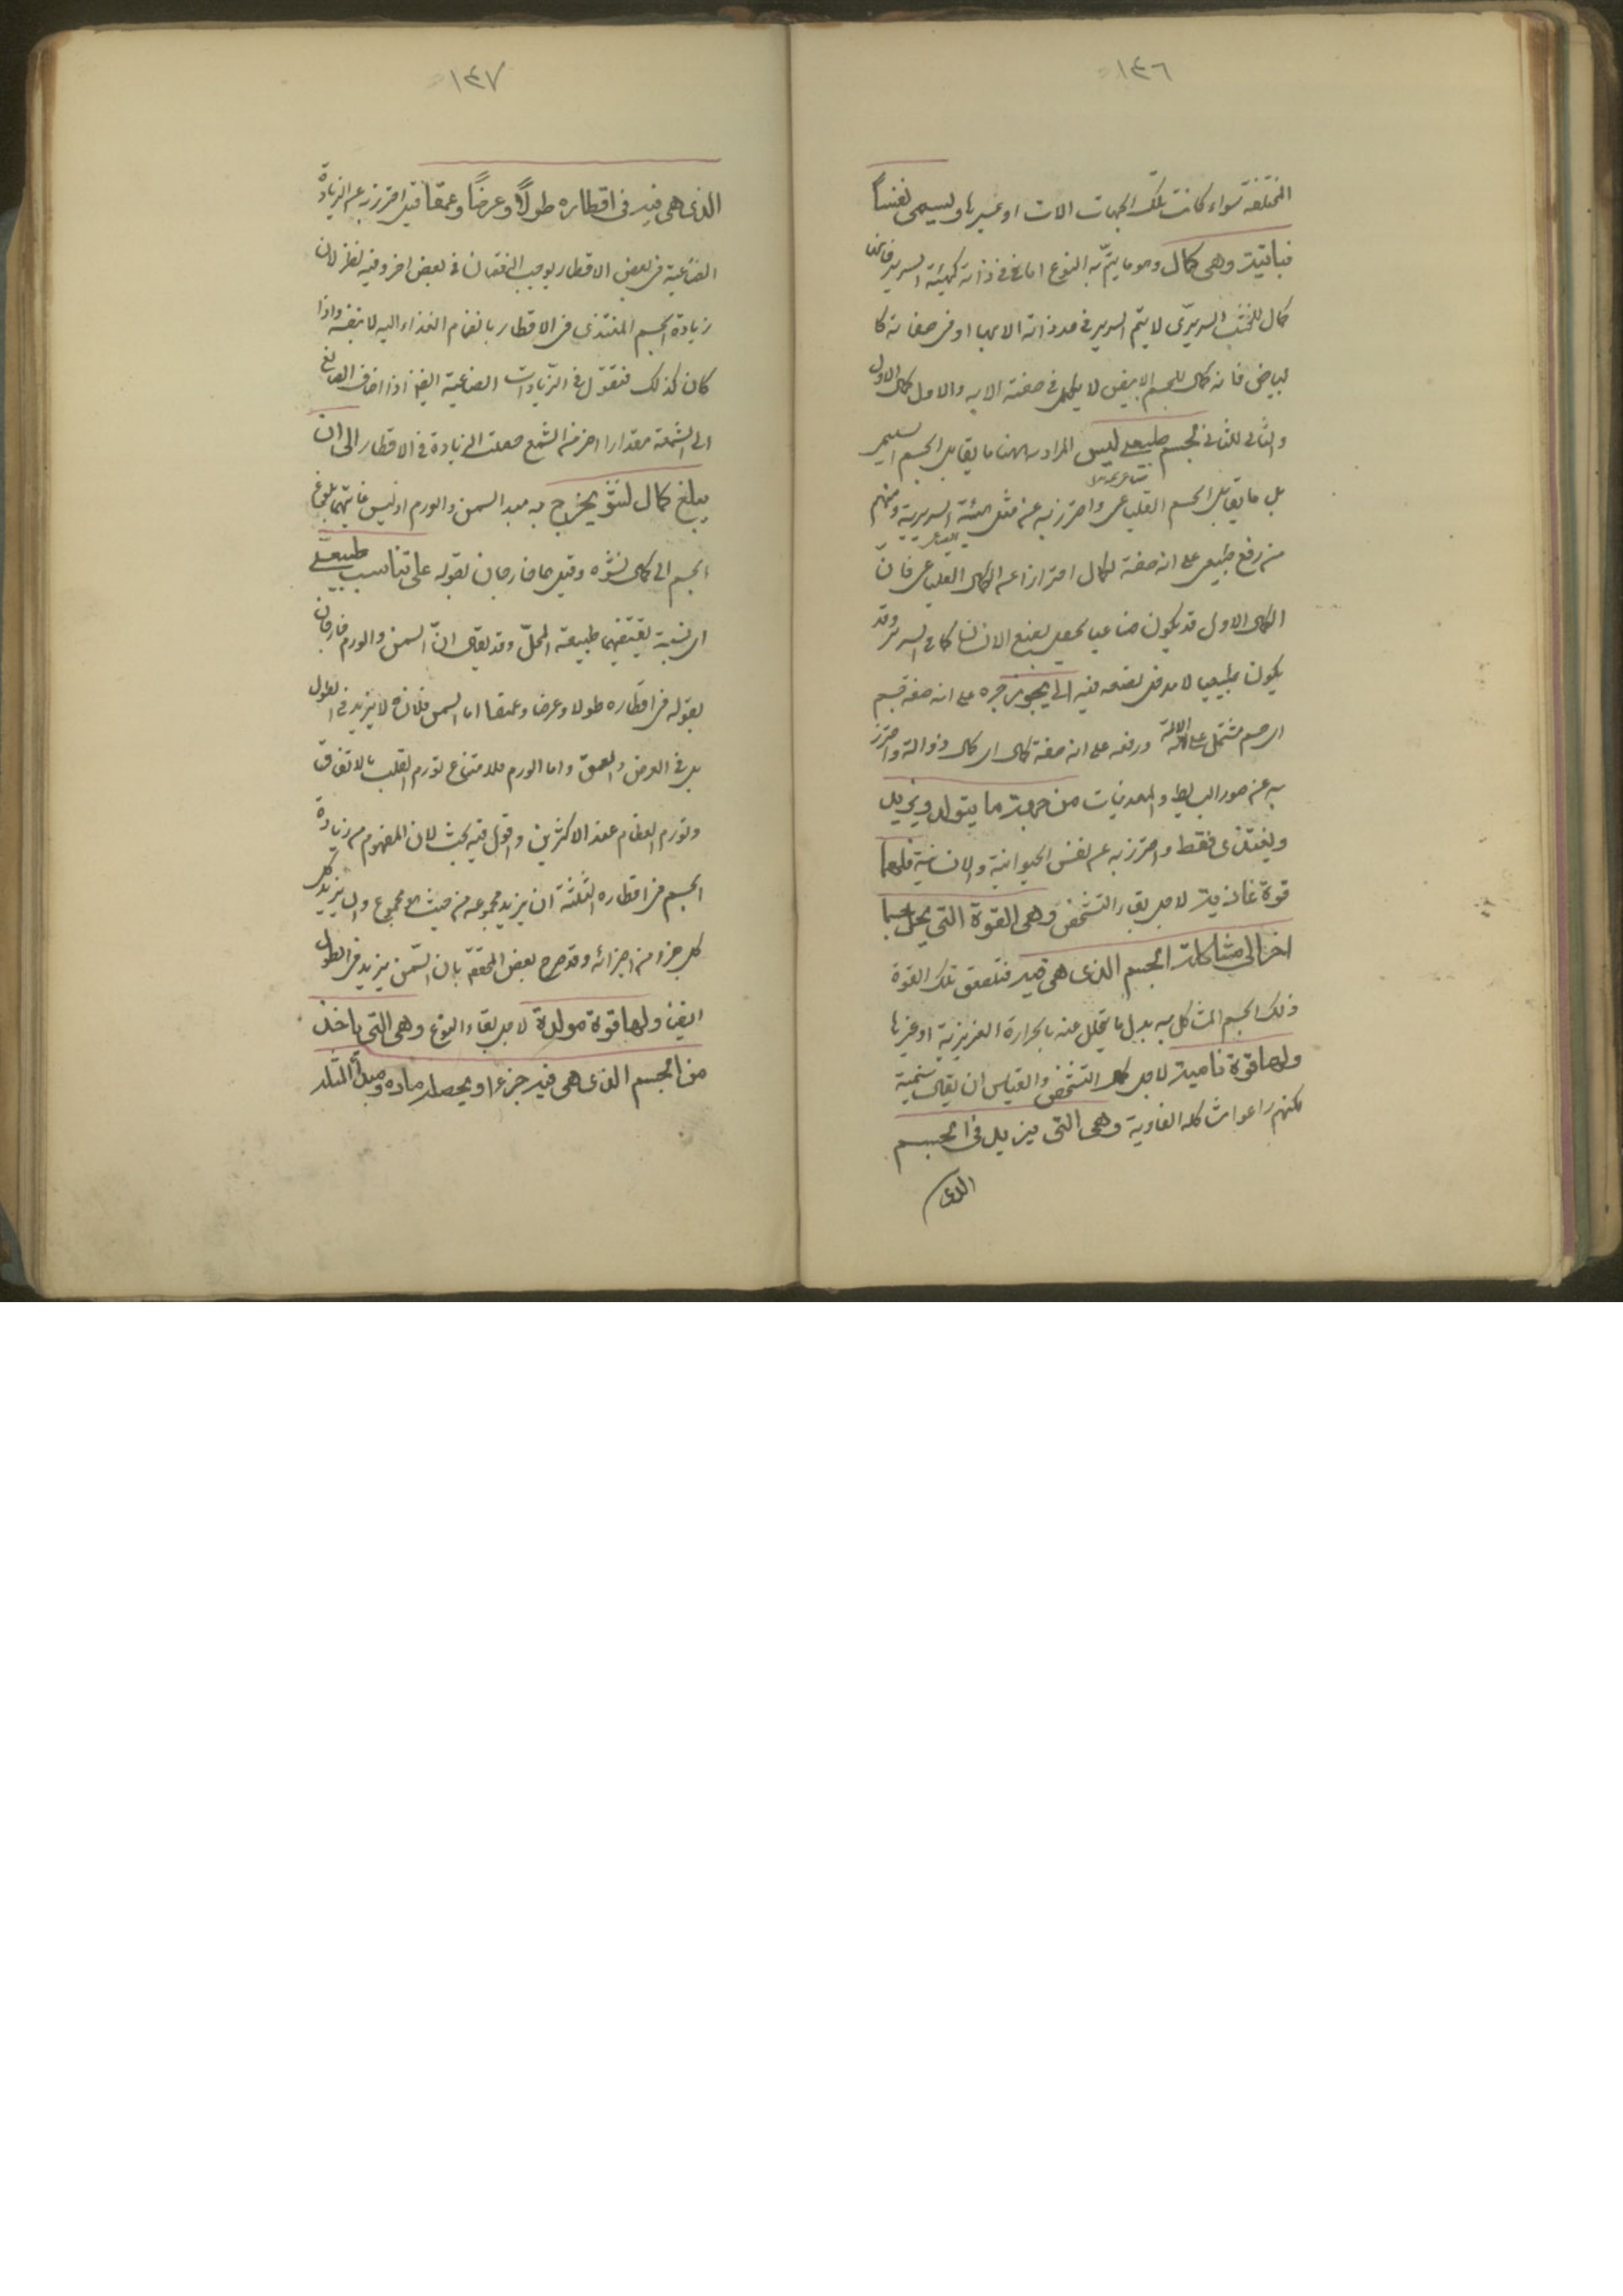 ١٤٦
المختلفة سواء كانت تلك الجهات الات او غيرها ويسمى نفساً
نباتية وهى كمال وهو ما يتم به النوع اما فى ذاته كهيئة السرير فانها
كمال للخشب السريرى لا يتم السرير فى حد ذاته الا بها او فى صفاته كا
لبياض فانه كمال للجسم الابيض لا يكمل فى صفته الا به والاول كمال الاول
والثانى للثانى لجسم طبيعى ليس المراد به ههنا ما يقابل الجسم التعليمى
بل ما يقابل الجسم الصناعى واحترز به عن مثل الهيئة السريرية ومنهم
من رفع طبيعى على انه صفة لكمال احترازا عن الكمال الصناعى فان
الكمال الاول قد يكون صناعيا يحصل بصنع الانسان كما فى السرير وقد
يكون طبيعيا لا مدخل لصنعه فيه الى يجوز جره على انه صفة جسم
اى جسم مشتمل على الالة ورفعه على انه صفة كمال اى كمال ذو الة واحترز
به عن صور البسايط والمعدنيات من جهة ما يتولد ويزيد
ويغتذى فقط واحترز به عن نفس الحيوانية والانسانية فلها
قوة غاذية لاجل بقاء الشخص وهى القوة التى يحل جسما
اخر الى مشاكلة الجسم الذى هى فيه فتلصق تلك القوة
ذلك الجسم المشاكل به بدل ما يتحلل عنه بالحرارة الغريزية او غيرها
ولها قوة نامية لاجل كمال الشخص والقياس ان يقال منمية
لكنهم راعوا مشاكلة الغاذية وهى التى يزيد فى الجسم
الذى
١٤٧
الذى هى فيه فى اقطاره طولاً وعرضاً وعمقا قيل احترز به عن الزيادة
الصناعية فى بعض الاقطار يوجب النقصان فى بعض اخر وفيه نظر لان
زيادة الجسم المغتذى فى الاقطار بانضمام الغذاء اليه لا بنفسه واذا
كان كذلك فنقول فى الزيادات الصناعية ايضا اذا اضاف الصانع
الى الشمعة مقدارا اخر من الشمع حصلت الزيادة فى الاقطار الى ان
يبلغ كمال النشو يخرج به مبدء السمن والورم اذ ليس غايتهما بلوغ
الجسم الى كمال نشوه وقيل هما خارجان بقوله على تناسب طبيعى
اى نسبة يقتضيها طبيعة المحل وقد يقال ان السمن والورم خارجان
بقوله فى اقطاره طولا وعرضا وعمقا اما السمن فلانه لا يزيد فى الطول
بل فى العرض والعمق واما الورم فلامتناع تورم القلب بالاتفاق
وتورم العظام عند الاكثرين واقول فيه بحث لان المفهوم من زيادة
الجسم فى اقطاره الثلثة ان يزيد مجموعه من حيث هو مجموع وان لم يزد
كل جزء من اجزائه وقد صرح بعض المحققين بان السمن يزيد فى الطول
ايضا ولها قوة مولدة لاجل بقاء النوع وهى التى ياخذ
من الجسم الذى هى فيه جزءا ويجعله مادة ومبدأ لمثله